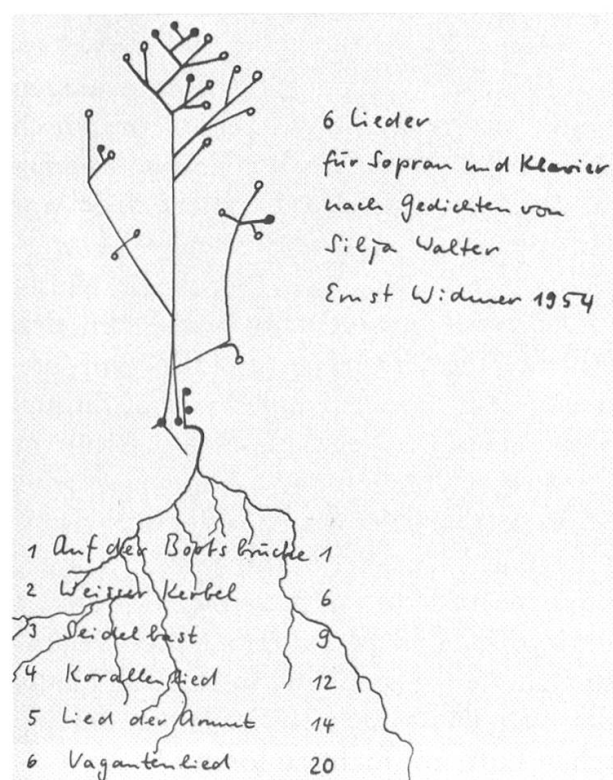 6 Lieder
für Sopran und Klavier
nach Gedichten von
Silja Walter
Ernst Widmer 1954
1 Auf der Bootsbrücke 1
2 Weisser Kerbel 6
3 Seidelbast 9
4 Korallenlied 12
5 Lied der Armut 14
6 Vagantenlied 20